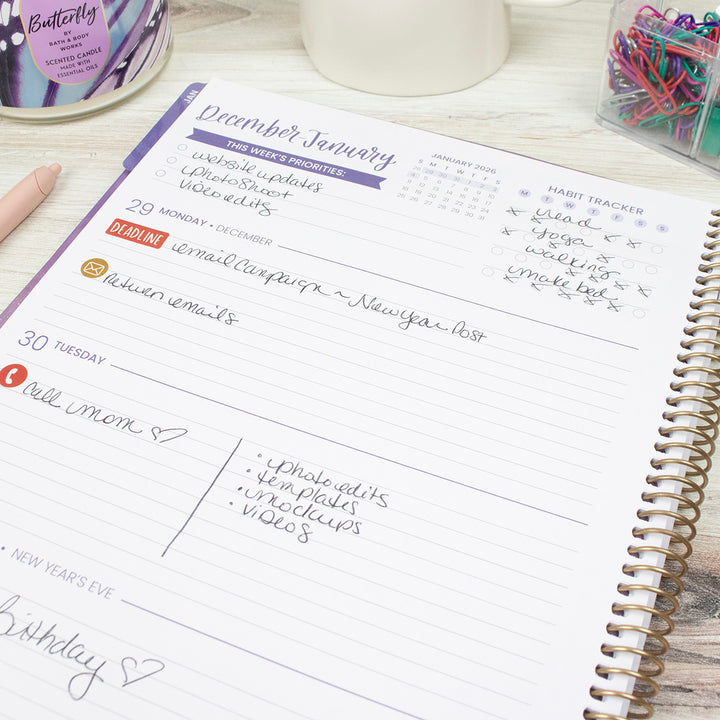 Butterfly
BY
BATH & BODY
WORKS
SCENTED CANDLE
MADE WITH
ESSENTIAL OILS
JAN
December-January
THIS WEEK'S PRIORITIES:
website updates
photoshoot
video edits
JANUARY 2026
S M T W T F S
28 29 30 31 1 2 3
4 5 6 7 8 9 10
11 12 13 14 15 16 17
18 19 20 21 22 23 24
25 26 27 28 29 30 31
HABIT TRACKER
M T W T F S S
read
yoga
walking
make bed
29 MONDAY • DECEMBER
DEADLINE email Campaign ~ New Year Post
Return emails
30 TUESDAY
call mom ♡
• photo edits
• templates
• mockups
• videos
• NEW YEAR'S EVE
Birthday ♡